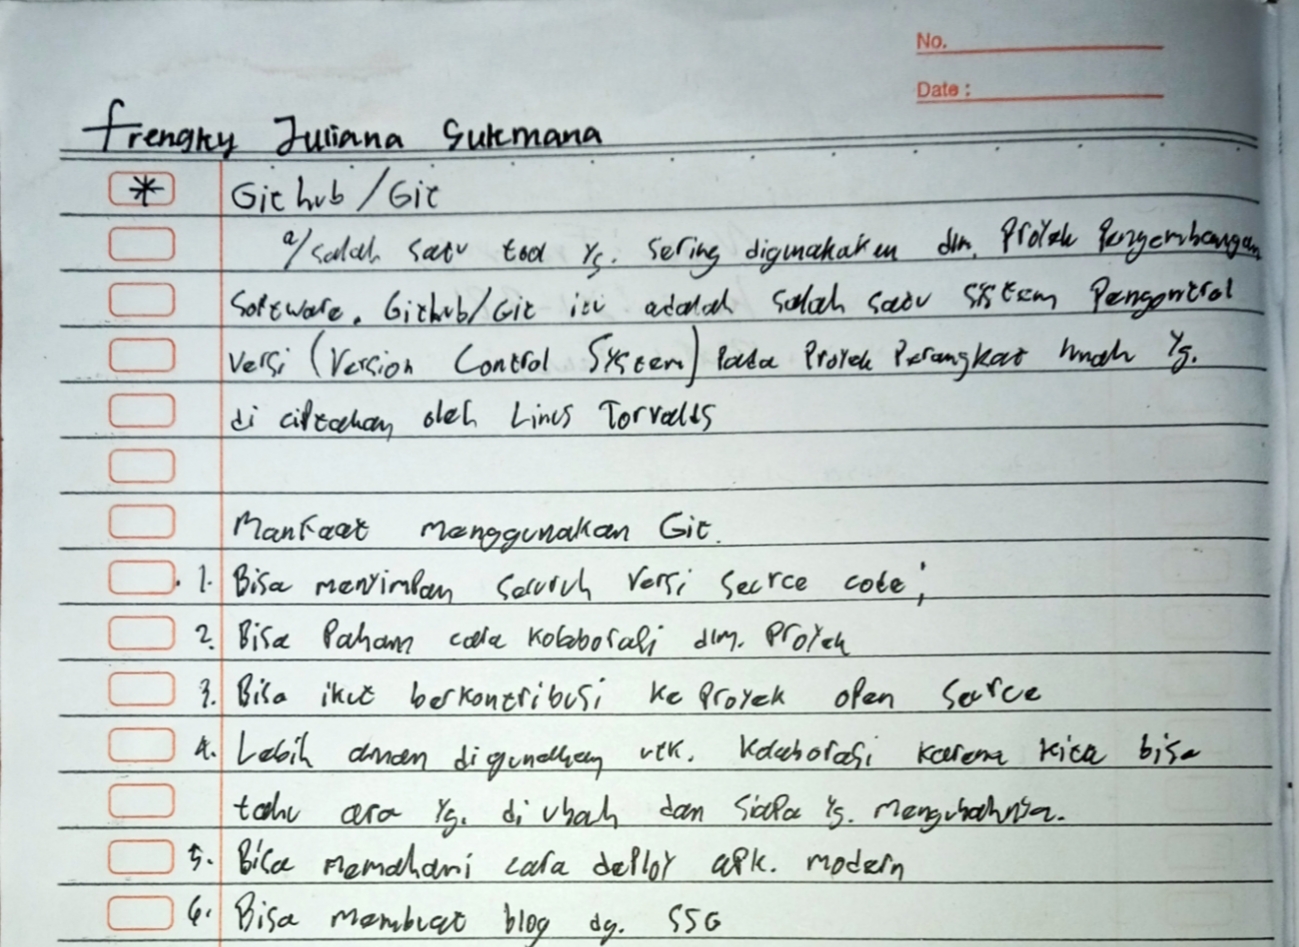 No.
Date :
Frengky Juliana Sukmana
* Github/Git
a/salah satu tool yg. sering digunakaken dlm. Proyek Pengembangan
Software. Github/Git itu adalah salah satu sistem Pengontrol
Versi (Version Control System) Pada Proyek Perangkat lunak yg.
di ciptakan oleh Linus Torvalds
Manfaat menggunakan Git.
1. Bisa menyimpan seluruh versi source code;
2. Bisa Paham cara kolaborasi dlm. Proyek
3. Bisa ikut berkontribusi ke Proyek open source
4. Lebih aman digunakan utk. kolaborasi karena kita bisa
tahu apa yg. di ubah dan siapa yg. mengubahnya.
5. Bisa memahami cara deploy apk. modern
6. Bisa membuat blog dg. SSG